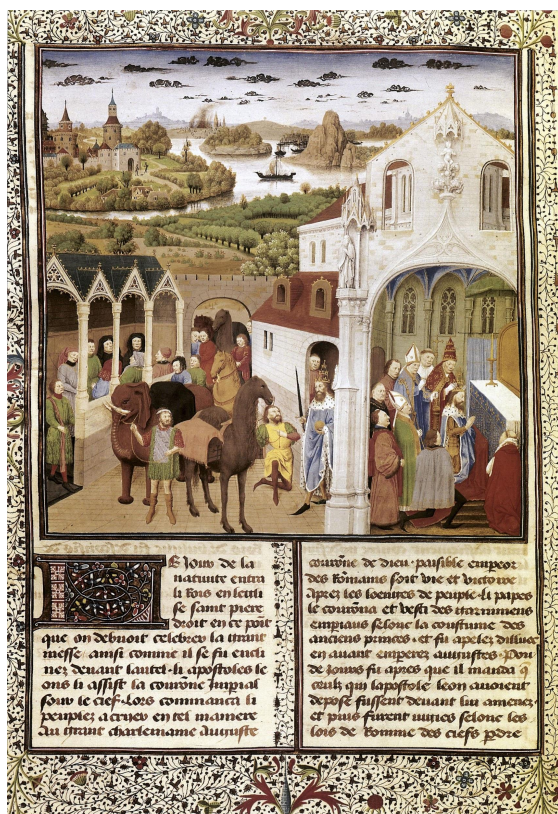 LE Jour de la
natiuite entra
li Rois en legli
se saint piere
droit en ce point
que on debuoit celebrer la grant
messe ainsi comme il se fu encli
nez deuant lautel · li apostoles le
ons li assist la couronne imperial
sour le cief · Lors commanca li
peuples a crier en tel maniere
Au grant charlemaine Auguste
couronne de dieu · paisible empeor
des Romains soit vie et victoire
Apres les loenges de peuple · li papes
le couronna et vesti des garnimens
empiaus selonc la coustume des
anciens princes · et fu apelez dilluec
en auant emperez augustes · Pou
de iours fu apres que il manda q
ceulz qui lapostole leon auoient
depose fussent deuant lui amenez ·
et puis furent iugies selonc les
lois de Romme des ciefs pdre